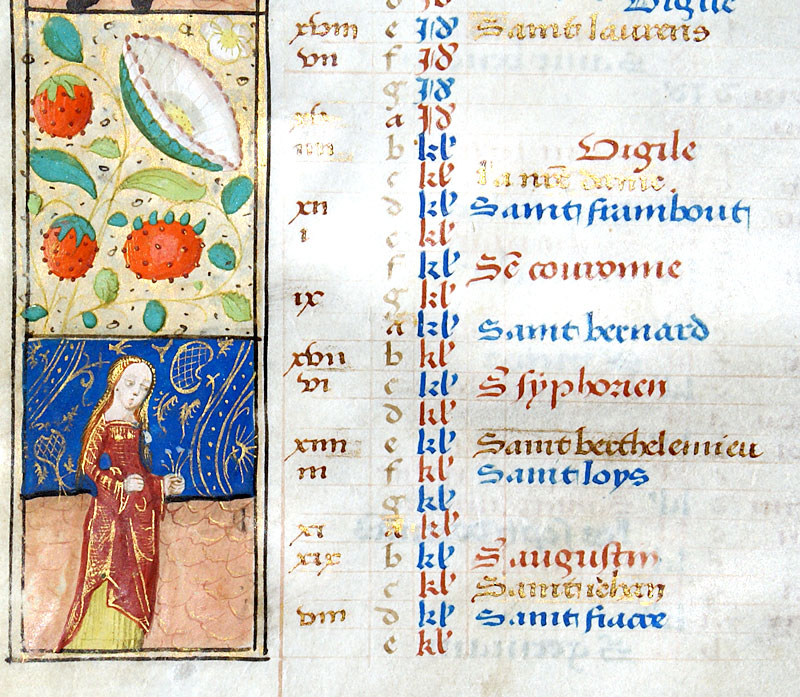 d Vigile
xviii e Id Saint laurens
vii f Id
g Id
a Id
iiii b kl Vigile
c kl la nře dame
xii d kl Saint frambout
i e kl
f kl Sē couronne
ix g kl
a kl Saint bernard
xvii b kl
vi c kl S syphorien
d kl
xiiii e kl Saint berthelemieu
iii f kl Saint loys
g kl
xi a kl
xix b kl S augustin
c kl Saint iehan
viii d kl Saint fiacre
e kl